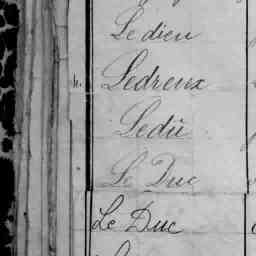 Le dieu
Ledreux
Ledû
Le Duc
Le Duc